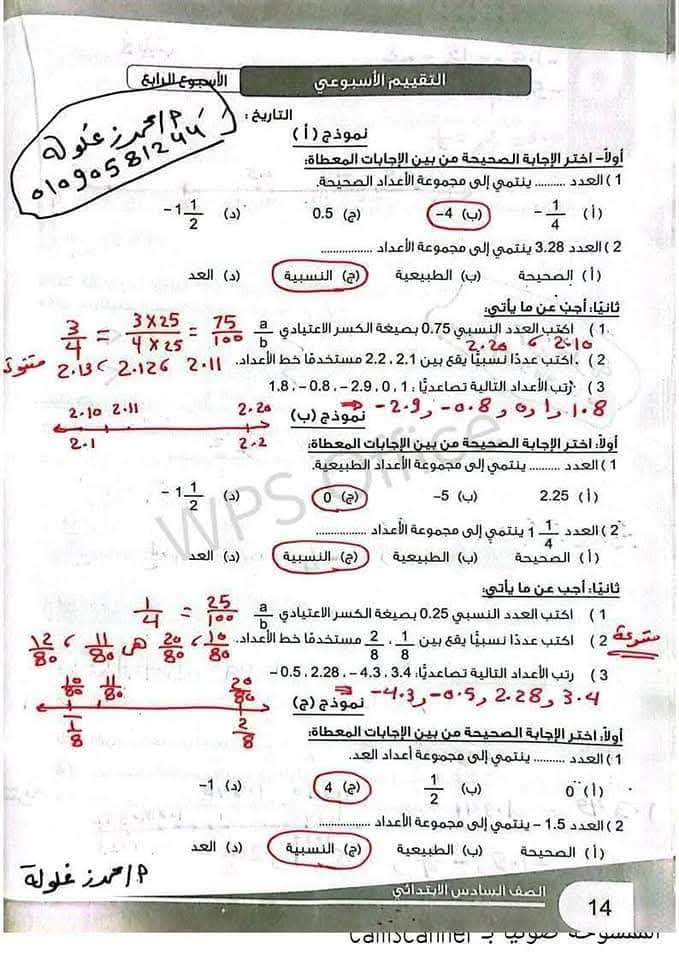 التقييم الأسبوعي
الأسبوع الرابع
التاريخ :
م/محمد زغلولة
01090581244
نموذج ( أ )
أولاً- اختر الإجابة الصحيحة من بين الإجابات المعطاة:
1 ) العدد .......... ينتمي إلى مجموعة الأعداد الصحيحة.
( أ ) - 1/4 (ب) 4- (ج) 0.5 (د) - 1 1/2
2 ) العدد 3.28 ينتمي إلى مجموعة الأعداد ..................
( أ ) الصحيحة (ب) الطبيعية (ج) النسبية (د) العد
ثانيًا: أجب عن ما يأتي:
1 ) اكتب العدد النسبي 0.75 بصيغة الكسر الاعتيادي a/b
3/4 = 3 x 25 / 4 x 25 = 75/100
2.20 ، 2.10
2 ) اكتب عددًا نسبيًا يقع بين 2.1 ، 2.2 مستخدمًا خط الأعداد.
2.11 ، 2.12 ، 2.13
3 ) رتب الأعداد التالية تصاعديًا: 1 ، 0 ، 2.9 - ، 0.8 - ، 1.8
⇒ -2.9 و -0.8 و 0 و 1 و 1.8
2.10 2.11 2.20
2.1 2.2
نموذج (ب)
أولاً: اختر الإجابة الصحيحة من بين الإجابات المعطاة:
1 ) العدد .......... ينتمي إلى مجموعة الأعداد الطبيعية.
( أ ) 2.25 (ب) 5- (ج) 0 (د) - 1 1/2
2 ) العدد 1 1/4 ينتمي إلى مجموعة الأعداد ..................
( أ ) الصحيحة (ب) الطبيعية (ج) النسبية (د) العد
ثانيًا: أجب عن ما يأتي:
1 ) اكتب العدد النسبي 0.25 بصيغة الكسر الاعتيادي a/b
1/4 = 25/100
2 ) اكتب عددًا نسبيًا يقع بين 1/8 ، 2/8 مستخدمًا خط الأعداد.
10/80 ، 20/80 هى 11/80 ، 12/80
3 ) رتب الأعداد التالية تصاعديًا: 3.4 ، 4.3 - ، 2.28 ، 0.5 -
⇒ -4.3 و -0.5 و 2.28 و 3.4
10/80 11/80 20/80
1/8 2/8
نموذج (ج)
أولاً: اختر الإجابة الصحيحة من بين الإجابات المعطاة:
1 ) العدد .......... ينتمي إلى مجموعة أعداد العد.
( أ ) 0 (ب) 1/2 (ج) 4 (د) 1-
2 ) العدد 1.5 - ينتمي إلى مجموعة الأعداد ..................
( أ ) الصحيحة (ب) الطبيعية (ج) النسبية (د) العد
م/محمد زغلولة
الصف السادس الابتدائي
14
WPS Office
الممسوحة ضوئيا بـ CamScanner